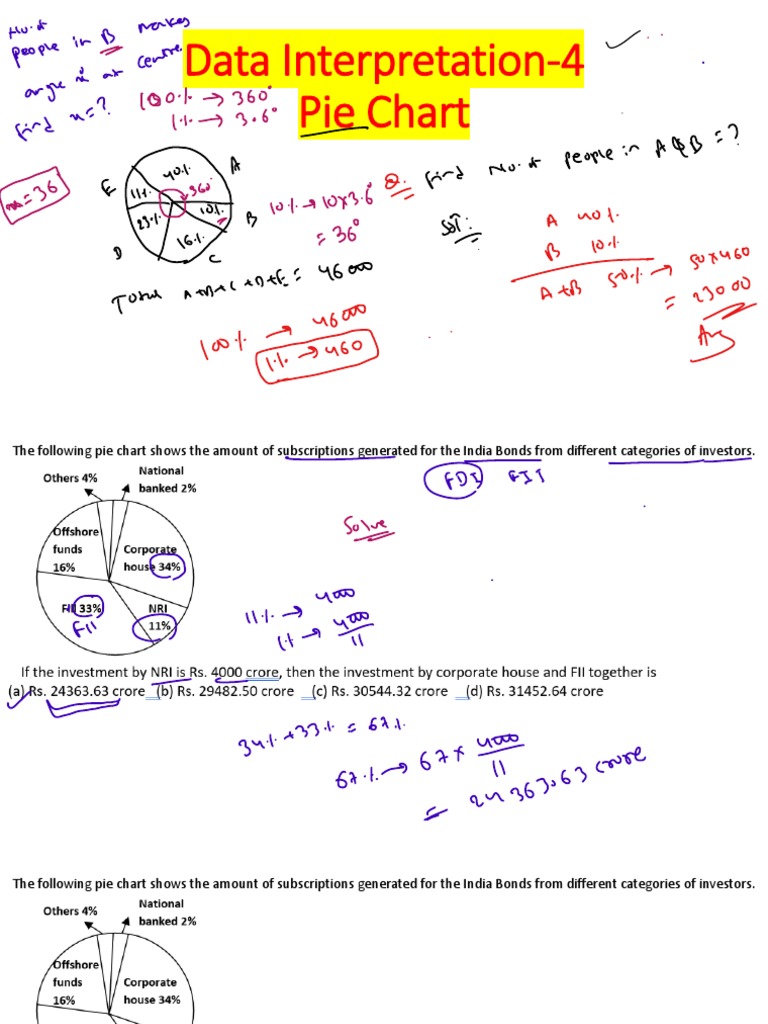 No. of
people in B makes
angle x° at centre
find x = ?
Data Interpretation-4
Pie Chart
100% → 360°
1% → 3.6°
x = 36
E
40%
A
11%
360°
10%
B
23%
16%
D
C
10% → 10×3.6°
= 36°
Q. find No. of people in A & B = ?
Sol:
A 40%
B 10%
A+B 50% → 50×460
= 23000
Ans
Total A+B+C+D+E = 46000
100% → 46000
1% → 460
The following pie chart shows the amount of subscriptions generated for the India Bonds from different categories of investors.
FDI FII
Others 4%
National
banked 2%
Offshore
funds
16%
Corporate
house 34%
FII 33%
FII
NRI
11%
Solve
11% → 4000
1% → 4000/11
If the investment by NRI is Rs. 4000 crore, then the investment by corporate house and FII together is
(a) Rs. 24363.63 crore (b) Rs. 29482.50 crore (c) Rs. 30544.32 crore (d) Rs. 31452.64 crore
34% + 33% = 67%
67% → 67 × 4000/11
= 24363.63 crore
The following pie chart shows the amount of subscriptions generated for the India Bonds from different categories of investors.
Others 4%
National
banked 2%
Offshore
funds
16%
Corporate
house 34%